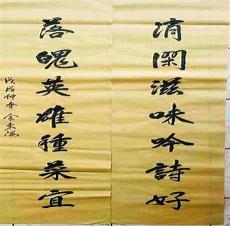 消閑滋味吟詩好
落魄英雄種菜宜
戊戌仲春